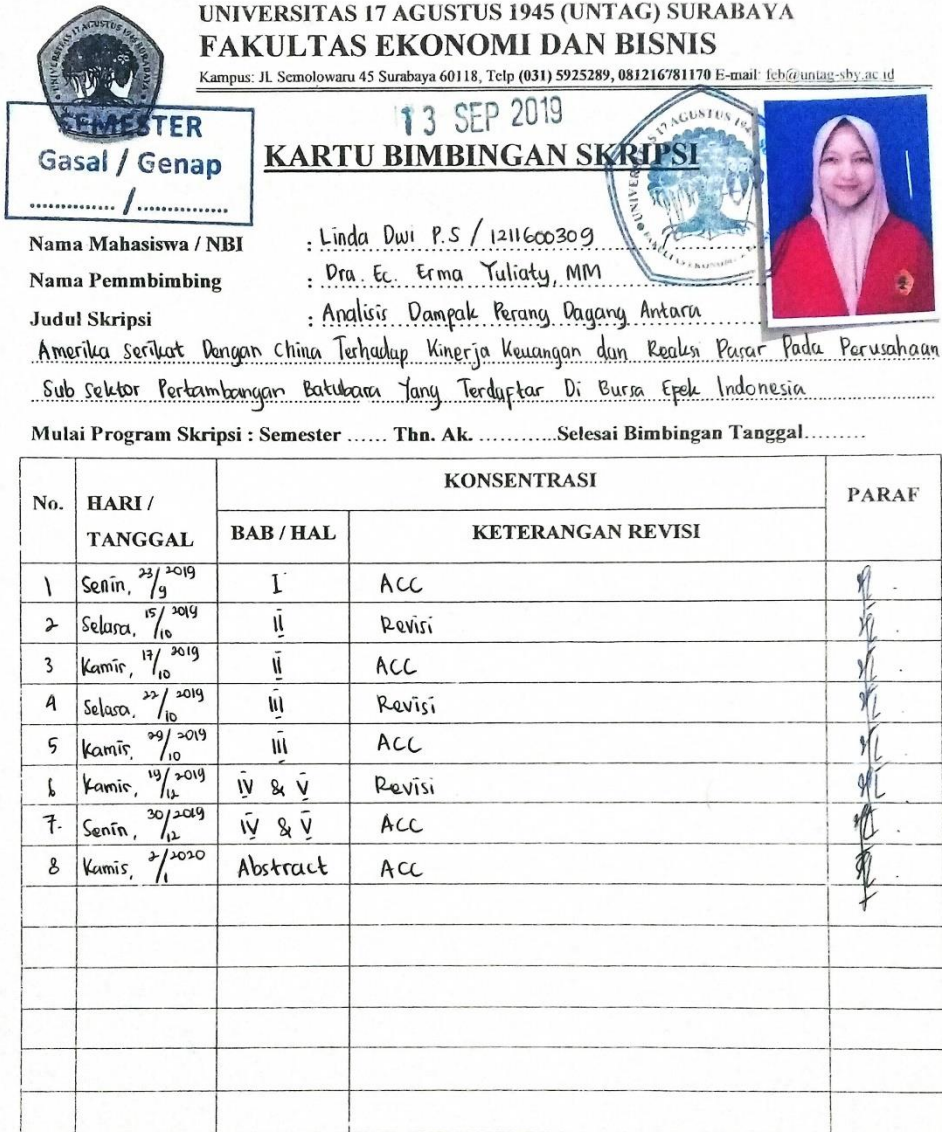 UNIVERSITAS 17 AGUSTUS 1945 (UNTAG) SURABAYA
FAKULTAS EKONOMI DAN BISNIS
Kampus: JL Semolowaru 45 Surabaya 60118, Telp (031) 5925289, 081216781170 E-mail: feb@untag-sby.ac.id
13 SEP 2019
SEMESTER
Gasal / Genap
.............. / ...............
KARTU BIMBINGAN SKRIPSI
Nama Mahasiswa / NBI : Linda Dwi P.S / 1211600309
Nama Pemmbimbing : Dra. Ec. Erma Yuliaty, MM
Judul Skripsi : Analisis Dampak Perang Dagang Antara
Amerika Serikat Dengan China Terhadap Kinerja Keuangan dan Reaksi Pasar Pada Perusahaan
Sub Sektor Pertambangan Batubara Yang Terdaftar Di Bursa Efek Indonesia
Mulai Program Skripsi : Semester ...... Thn. Ak. ............Selesai Bimbingan Tanggal.........
No. HARI / TANGGAL KONSENTRASI PARAF
BAB / HAL KETERANGAN REVISI
1 Senin, 23/9 2019 I ACC
2 Selasa, 15/10 2019 II Revisi
3 Kamis, 17/10 2019 II ACC
4 Selasa, 22/10 2019 III Revisi
5 Kamis, 29/10 2019 III ACC
6 Kamis, 19/12 2019 IV & V Revisi
7. Senin, 30/12 2019 IV & V ACC
8 Kamis, 2/1 2020 Abstract ACC